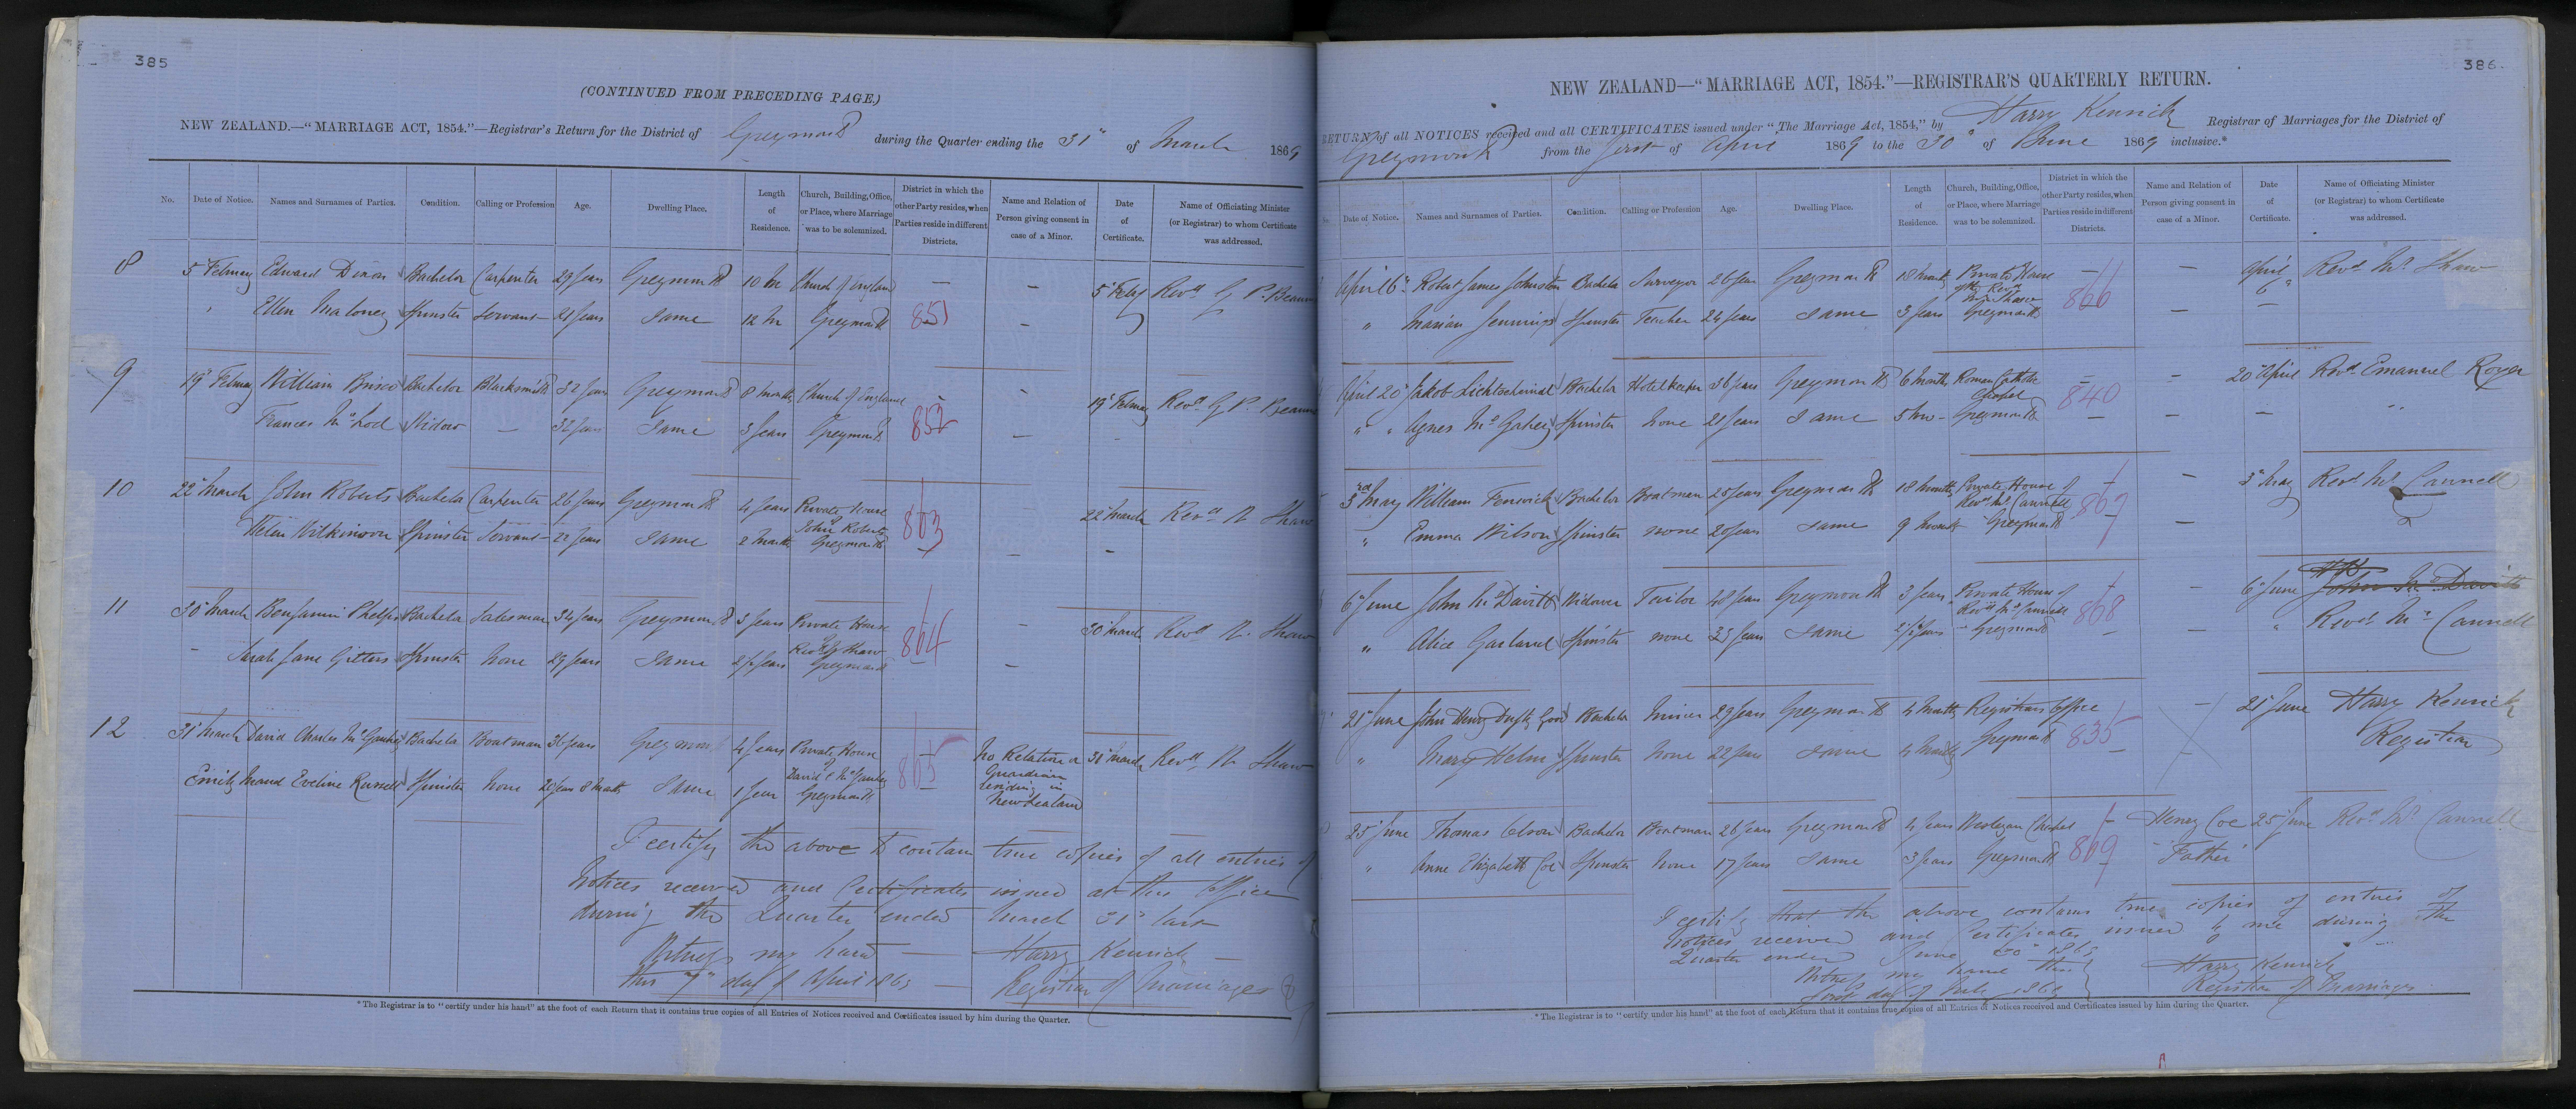 385
(CONTINUED FROM PRECEDING PAGE.)
NEW ZEALAND.—"MARRIAGE ACT, 1854."—Registrar's Return for the District of Greymouth during the Quarter ending the 31st of March 1869
No. Date of Notice. Names and Surnames of Parties. Condition. Calling or Profession Age. Dwelling Place. Length of Residence. Church, Building, Office, or Place, where Marriage was to be solemnized. District in which the other Party resides, when Parties reside in different Districts. Name and Relation of Person giving consent in case of a Minor. Date of Certificate. Name of Officiating Minister (or Registrar) to whom Certificate was addressed.
8 5 February Edward Dixon Bachelor Carpenter 29 years Greymouth 10 M Church of England — — 5 Feby Revd G P Beaum
" Ellen Maloney Spinster Servant 21 years Same 12 M Greymouth 851 —
9 19 February William Brisco Bachelor Blacksmith 32 years Greymouth 8 months Church of England — — 19 February Revd G P. Beaum
Frances McLod Widow — 32 years Same 3 years Greymouth 852 —
10 22 March John Roberts Bachelor Carpenter 26 years Greymouth 4 years Private House 22 March Revd R Shaw
of John Roberts
Helen Wilkinson Spinster Servant 22 years Same 2 months Greymouth 863 — —
11 30 March Benjamin Phelps Bachelor Salesman 34 years Greymouth 3 years Private House — 30 March Revd R. Shaw
of Revd Shaw
Sarah Jane Gitters Spinster None 29 years Same 2½ years Greymouth 864 —
12 31 March David Charles Bachelor Boatman 36 years Greymouth 4 years Private House No Relation or 31 March Revd R Shaw
of David C Guardian
Emily Maud Eveline Russell Spinster None 20 years 8 months Same 1 year Greymouth 865 residing in
New Zealand
I certify the above to contain true copies of all entries of
Notices received and Certificates issued at this Office
during the Quarter ended March 31st last
Witness my hand — Harry Kenrick —
this 7th day of April 1869 — Registrar of Marriages
*The Registrar is to "certify under his hand" at the foot of each Return that it contains true copies of all Entries of Notices received and Certificates issued by him during the Quarter.
386.
NEW ZEALAND—"MARRIAGE ACT, 1854."—REGISTRAR'S QUARTERLY RETURN.
RETURN of all NOTICES received and all CERTIFICATES issued under "The Marriage Act, 1854," by Harry Kenrick Registrar of Marriages for the District of
Greymouth from the first of April 1869 to the 30th of June 1869 inclusive.*
No. Date of Notice. Names and Surnames of Parties. Condition. Calling or Profession Age. Dwelling Place. Length of Residence. Church, Building, Office, or Place, where Marriage was to be solemnized. District in which the other Party resides, when Parties reside in different Districts. Name and Relation of Person giving consent in case of a Minor. Date of Certificate. Name of Officiating Minister (or Registrar) to whom Certificate was addressed.
April 6th Robert James Johnston Bachelor Surveyor 26 years Greymouth 18 months Private House — — April 6th Revd Mr Shaw
of the Revd Mr Shaw
" Marian Jennings Spinster Teacher 24 years Same 3 years Greymouth 866 — —
April 20 Jakob Bachelor Hotelkeeper 36 years Greymouth 6 months Roman Catholic — — 20 April Revd Emanuel Royer
Chapel
" " Agnes McGahey Spinster None 21 years Same 5 Greymouth 840 — — "
3rd May William Fenwick Bachelor Boatman 25 years Greymouth 18 months Private House of — — 3 May Revd Mr Cannell
Revd Mr Cannell
" Emma Wilson Spinster none 20 years Same 9 months Greymouth 867 —
6 June John McDavitt Widower Tailor 48 years Greymouth 3 years Private House of — — 6 June John McDavitt
Revd Mr Cannell
" Alice Garland Spinster none 33 years Same 2½ years Greymouth 868 — — " Revd Mr Cannell
21 June John Henry Good Bachelor Miner 29 years Greymouth 4 months Registrars Office — 21 June Harry Kenrick
" Mary Helm Spinster None 22 years Same 4 months Greymouth 835 — Registrar
25 June Thomas Olson Bachelor Boatman 26 years Greymouth 4 years Wesleyan Chapel — Henry Coe 25 June Revd Mr Cannell
" Anne Elizabeth Coe Spinster None 17 years Same 3 years Greymouth 869 "Father"
I certify that the above contains true copies of entries of
notices received and Certificates issued by me during the
Quarter ended June 30th 1869
Witness my hand this Harry Kenrick
first day of July 1869 Registrar of Marriages
*The Registrar is to "certify under his hand" at the foot of each Return that it contains true copies of all Entries of Notices received and Certificates issued by him during the Quarter.